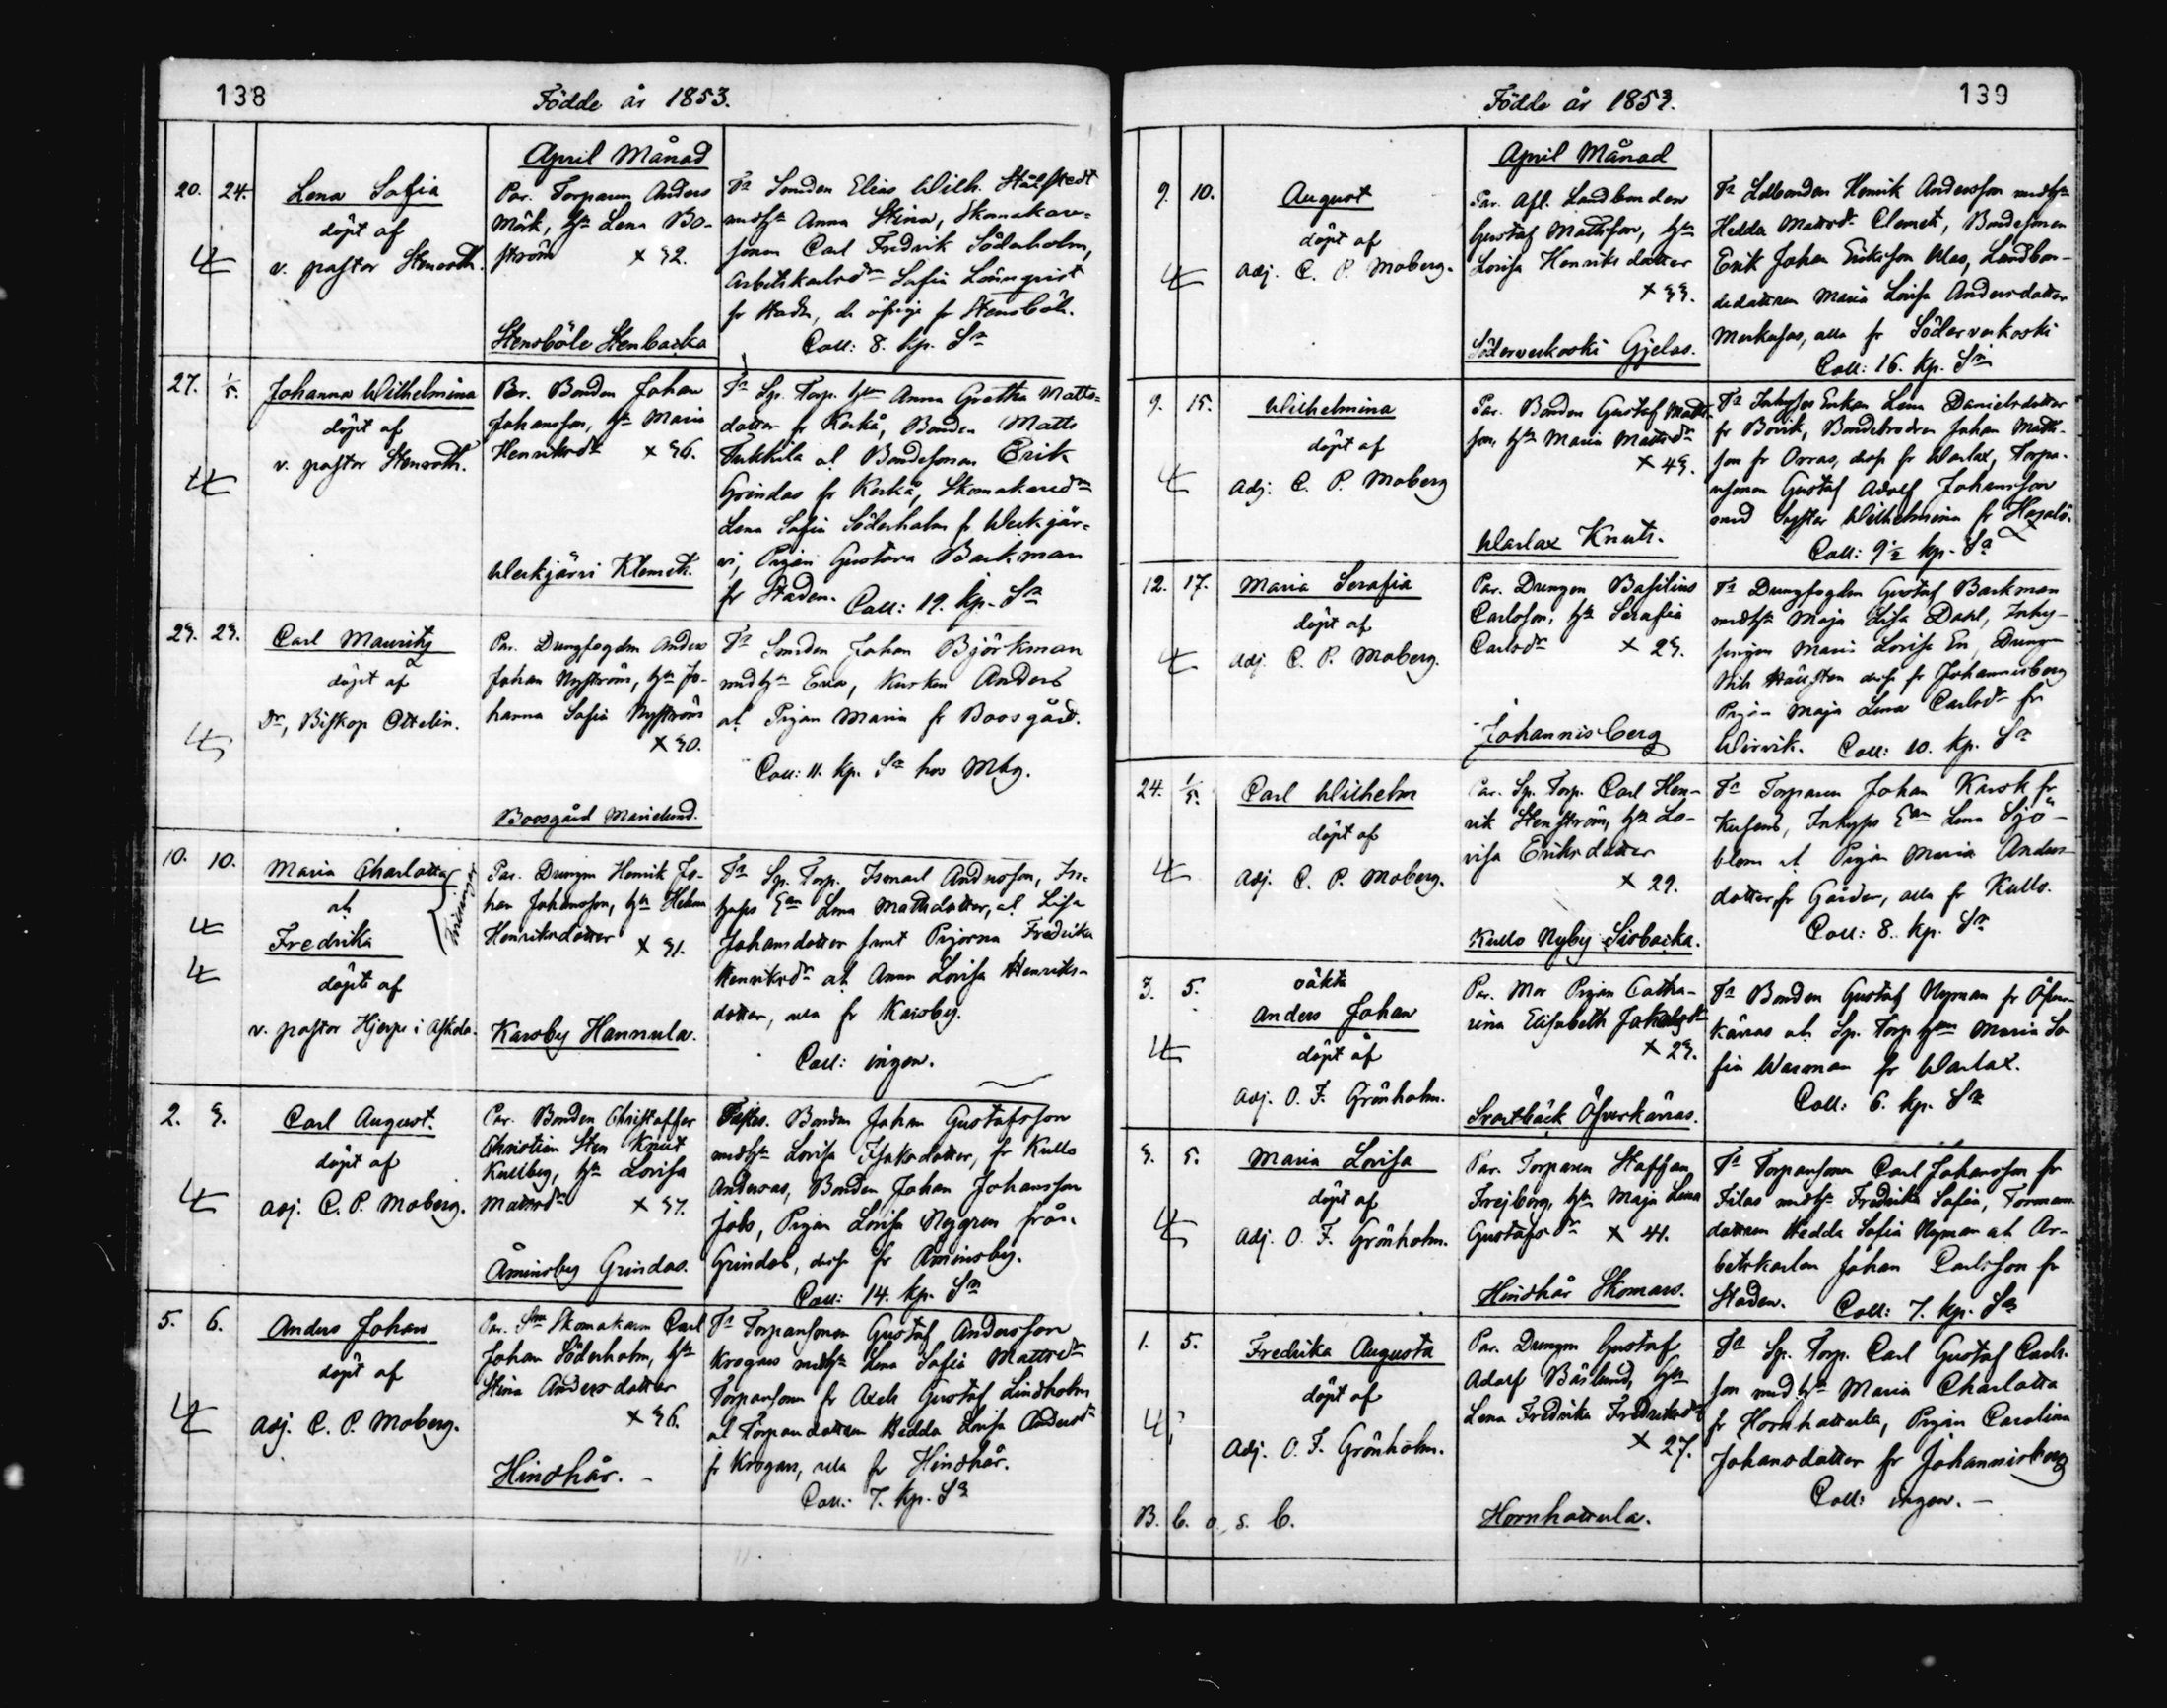 138
Födde år 1853.
April Månad
20. 24.
Lena Sofia
döpt af
v. pastor Stenroth.
Par. Torparen Anders
Mörk, h:n Lena Bo-
ström × 32.
Stensböle Stenbacka
F:r Smeden Elias Wilh. Stålstedt
med h:n Anna Stina, Skomakare-
sonen Carl Fredrik Söderholm,
Arbetskarlsd:n Sofia Lönnqvist
fr Staden, de öfrige fr Stensböle.
Coll: 8. kp. S:r
27. 1/5.
Johanna Wilhelmina
döpt af
v. pastor Stenroth.
Par. Bonden Johan
Johansson, h:n Maria
Henriksd:r × 36.
Werkjärvi Klemets.
F:r Sp. Torp. h:n Anna Gretha Matts-
dotter fr Kerkå, Bonden Matts
al Bondesonen Erik
Grindas fr Kerkå, Skomakared:n
Lena Sofia Söderholm fr Werkjär-
vi, Pigan Gustava Backman
fr Staden. Coll: 19. kp. S:r
23. 23.
Carl Mauritz
döpt af
Dr, Biskop Ottelin.
Par. Drengfogden Anders
Johan Nyström, h:n Jo-
hanna Sofia Nyström
× 30.
Boosgård Marielund.
F:r Smeden Johan Björkman
med h:n Eva, Kusken Anders
al Pigan Maria fr Boosgård.
Coll: 11. kp. S:r hos Mbg.
10. 10.
Maria Charlotta
och
Fredrika
Tvillingar
döpte af
v. pastor Hjerpe i Askola.
Par. Drengen Henrik Jo-
han Johansson, h:n Helena
Henriksdotter × 31.
Karsby Hannula.
F:r Sp. Torp. Ismael Andersson, In-
hyses E:an Lena Mattsdotter, al Lisa
Johansdotter samt Pigorna Fredrika
Henriksd:r al Anna Lovisa Henriks-
dotter, alla fr Karsby.
Coll: ingen.
2. 3.
Carl August.
döpt af
Adj. C. P. Moberg.
Par. Bonden Christoffer
Christian Sten Knut
Kullberg, h:n Lovisa
Mattsd:r × 37.
Åminsby Grindas.
Bonden Johan Gustafsson
med h:n Lovisa Isaksdotter, fr Kullo
Anderas, Bonden Johan Johansson
Jobs, Pigan Lovisa Nygren från
Grindas, desse fr Åminsby.
Coll: 14. kp. S:r
5. 6.
Anders Johan
döpt af
Adj. C. P. Moberg.
Par. S:n Skomakaren Carl
Johan Söderholm, h:n
Stina Andersdotter
× 36.
Hindhår.
F:r Torparsonen Gustaf Andersson
Krogars med h:n Lena Sofia Mattsd:r
Torparsonen fr Axels Gustaf Lindholm
al Torparedottren Hedda Lovisa Andersd:r
fr Krogars, alla fr Hindhår.
Coll: 7. kp. S:r
139
Födde år 1853.
April Månad
9. 10.
August
döpt af
Adj. C. P. Moberg.
Par. Afl. Landbonden
Gustaf Mattsson, h:n
Lovisa Henriksdotter
× 33.
Söderveckoski Gjelas.
F:r Landbonden Henrik Andersson med h:n
Hedda Mattsd:r Clemets, Bondesonen
Erik Johan Eriksson Klas, Landbon-
dedottren Maria Lovisa Andersdotter
Markusas, alla fr Söderveckoski
Coll: 16. kp. S:r
9. 15.
Wilhelmina
döpt af
Adj. C. P. Moberg
Par. Bonden Gustaf Matts-
son, h:n Maria Mattsd:r
× 43.
Warlax Knuts.
F:r Inhyses Enkan Lena Danielsdotter
fr Bovik, Bondebrodren Johan Matts-
son fr Orras, desse fr Warlax, Torpa-
resonen Gustaf Adolf Johansson
med Syster Wilhelmina fr
Coll: 9½ kp. S:r
12. 17.
Maria Serafia
döpt af
Adj. C. P. Moberg.
Par. Drengen Basilius
Carlsson, h:n Serafia
Carlsd:r × 23.
Johannisberg
F:r Drengfogden Gustaf Backman
med h:n Maja Lisa Dahl, Inhy-
sespigan Maria Lovisa En, Drengen
Nils Hällsten desse fr Johannisberg
Pigan Maja Lena Carlsd:r fr
Wirvik. Coll: 10. kp. S:r
24. 1/5.
Carl Wilhelm
döpt af
Adj. C. P. Moberg.
Par. Sp. Torp. Carl Hen-
rik Stenström, h:n Lo-
visa Eriksdotter
× 29.
Kullo Nyby Sisbacka.
F:r Torparen Johan Karsk fr
Kusens, Inhyses E:an Lena Sjö-
blom al Pigan Maria Anders-
dotter fr Gårdar, alla fr Kullo.
Coll: 8. kp. S:r
3. 5.
oäkta
Anders Johan
döpt af
Adj. O. F. Grönholm.
Par. Mor Pigan Catha-
rina Elisabeth Jakobsd:r
× 23.
Svartbäck Öfverkärras.
F:r Bonden Gustaf Nyman fr Öfver-
kärras al Sp. Torp h:n Maria So-
fia Warman fr Warlax.
Coll: 6. kp. S:r
3. 5.
Maria Lovisa
döpt af
Adj. O. F. Grönholm.
Par. Torparen Staffan
Frejberg, h:n Maja Lena
Gustafsd:r × 41.
Hindhår Skomars.
F:r Torparsonen Carl Johansson fr
Filas med h:n Fredrika Sofia,
dottren Hedda Sofia Nyman al Ar-
betskarlen Johan Carlsson fr
Staden. Coll: 7. kp. S:r
1. 5.
Fredrika Augusta
döpt af
Adj. O. F. Grönholm.
Par. Drengen Gustaf
Adolf Bäslund, h:n
Lena Fredrika Fredriksd:r
× 27.
Hornhattula.
F:r Sp. Torp. Carl Gustaf Carls-
son med h:n Maria Charlotta
fr Hornhattula, Pigan Carolina
Johansdotter fr Johannisberg
Coll: ingen.
B. b. o. s. b.